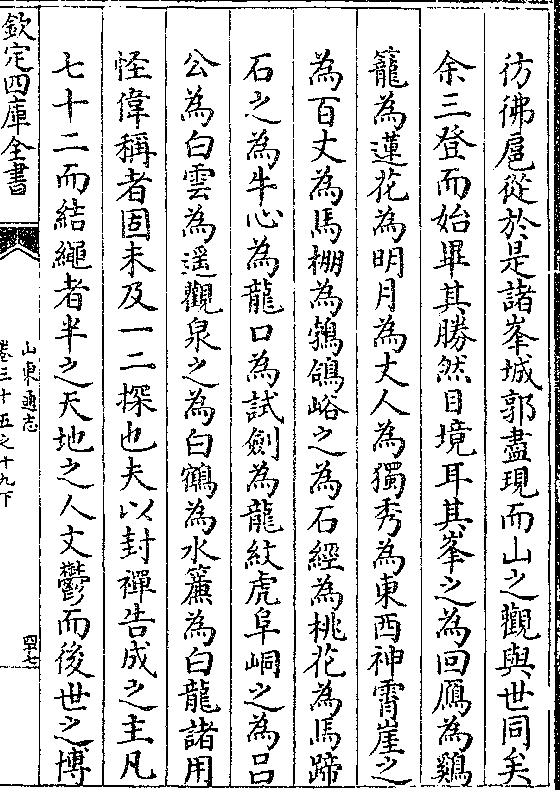 彷彿扈從於是諸峯城郭盡現而山之觀與世同矣
余三登而始畢其勝然目境耳其峯之為回鴈為鷄
籠為蓮花為明月為丈人為獨秀為東西神霄崖之
為百丈為馬棚為鵓鴿峪之為石經為桃花為馬蹄
石之為牛心為龍口為試劍為龍紋虎阜峒之為吕
公為白雲為遥觀泉之為白鶴為水簾為白龍諸用
怪偉稱者固未及一二探也夫以封禪告成之主凡
七十二而結繩者半之天地之人文鬱而後世之博
欽定四庫全書
山東通志
卷三十五之十九下
四七